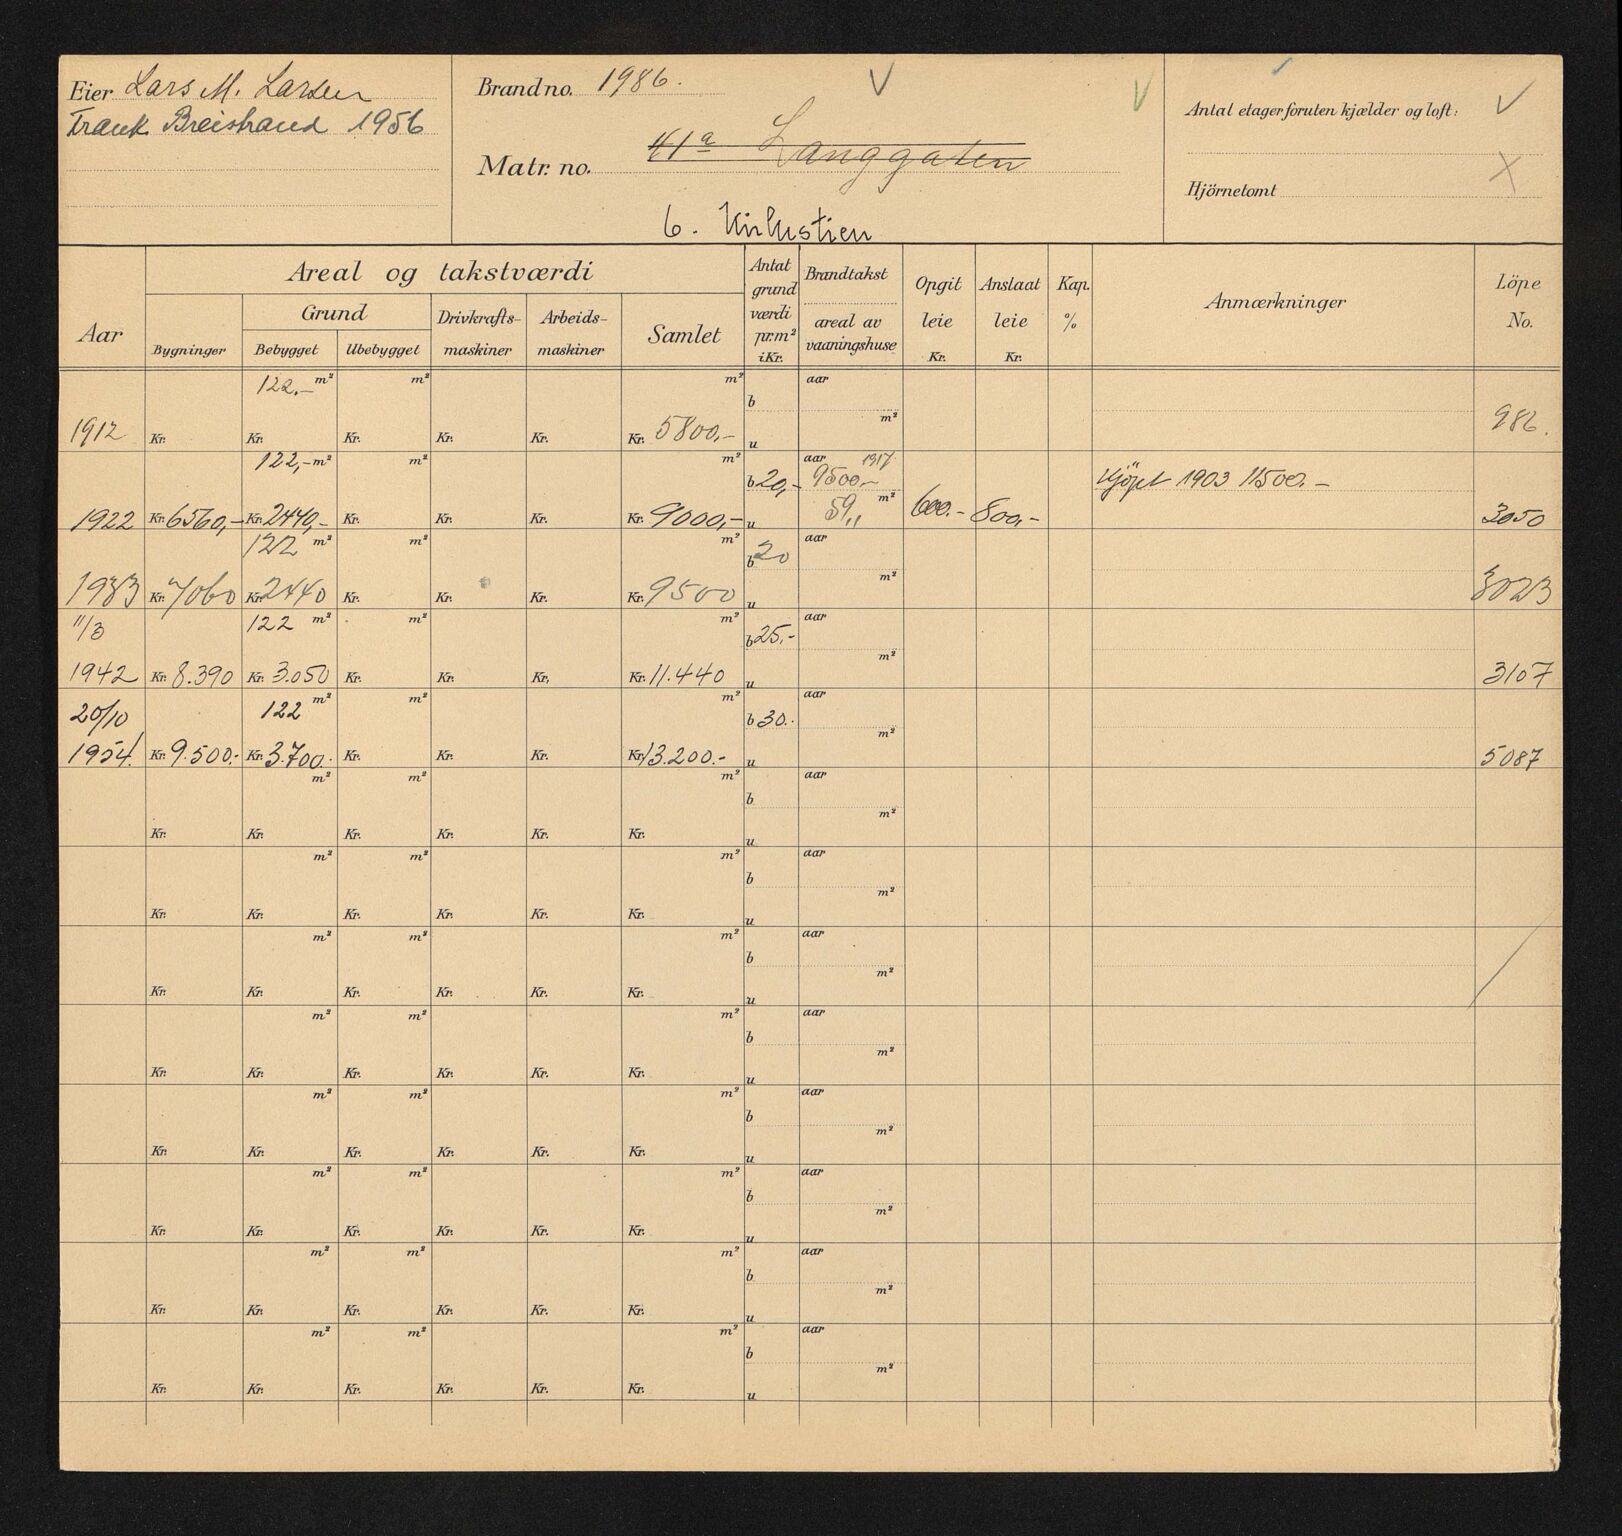 Eier Lars M. Larsen
Frank Breistrand 1956
Brand no. 1986.
Matr. no. 41a Langgaten
6. Kirkestien
Antal etager foruten kjælder og loft:
Hjörnetomt
Aar
Areal og takstværdi
Bygninger
Grund
Bebygget Ubebygget
Drivkrafts-maskiner
Arbeids-maskiner
Samlet
Antat grund værdi pr. m² i Kr.
Brandtakst
areal av vaaningshuse
Opgit leie Kr.
Anslaat leie Kr.
Kap. %
Anmærkninger
Löpe No.
122.- m² m² m² b aar
1912 Kr. Kr. Kr. Kr. Kr. Kr. 5800,- u m² 986.
122,- m² m² m² b 20,- aar 1917 9500.- Kjöpt 1903 11500.-
1922 Kr. 6560,- Kr. 2440,- Kr. Kr. Kr. Kr. 9000,- u 59,, m² 600.- 800,- 3050
122 m² m² m² b 20 aar
1933 Kr. 7060 Kr. 2440 Kr. Kr. Kr. Kr. 9500 u m² 3023
11/3 122 m² m² m² b 25.- aar
1942 Kr. 8.390 Kr. 3.050 Kr. Kr. Kr. Kr. 11.440 u m² 3107
20/10 122 m² m² m² b 30.- aar
1954. Kr. 9.500.- Kr. 3.700.- Kr. Kr. Kr. Kr. 13.200.- u m² 5087
m² m² m² b aar
Kr. Kr. Kr. Kr. Kr. Kr. u m²
m² m² m² b aar
Kr. Kr. Kr. Kr. Kr. Kr. u m²
m² m² m² b aar
Kr. Kr. Kr. Kr. Kr. Kr. u m²
m² m² m² b aar
Kr. Kr. Kr. Kr. Kr. Kr. u m²
m² m² m² b aar
Kr. Kr. Kr. Kr. Kr. Kr. u m²
m² m² m² b aar
Kr. Kr. Kr. Kr. Kr. Kr. u m²
m² m² m² b aar
Kr. Kr. Kr. Kr. Kr. Kr. u m²
m² m² m² b aar
Kr. Kr. Kr. Kr. Kr. Kr. u m²